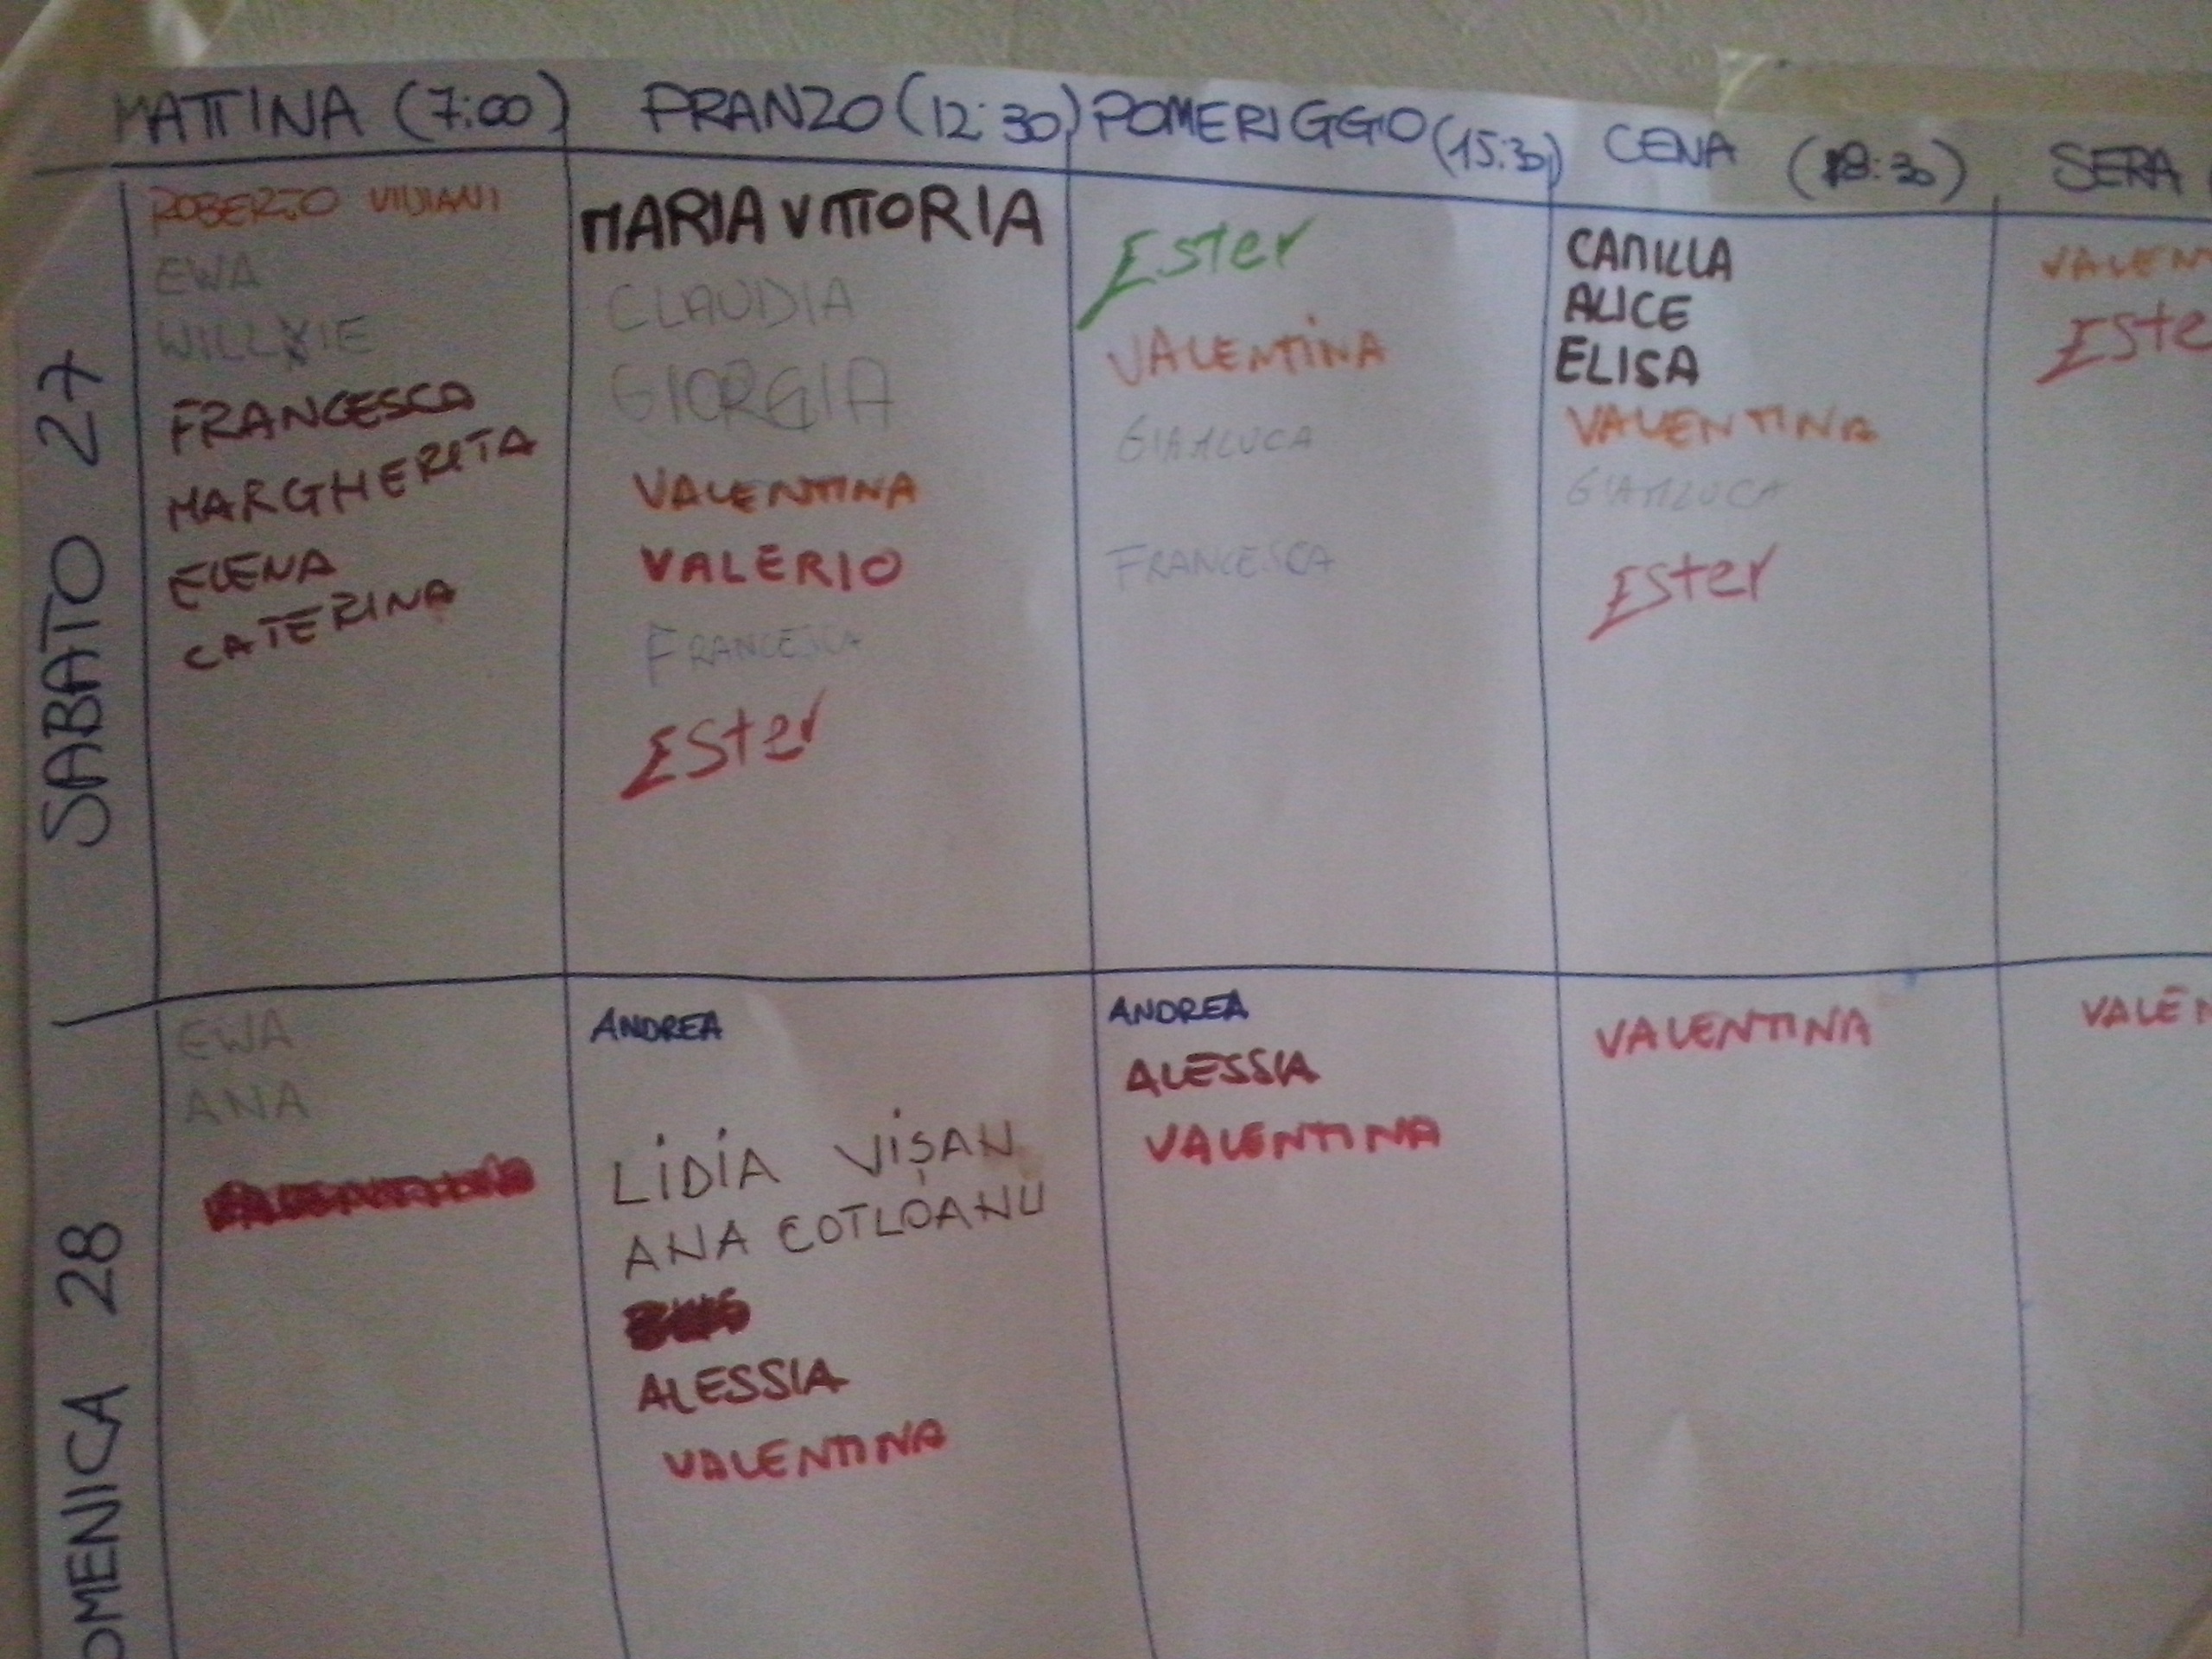 MATTINA (7:00) PRANZO (12:30) POMERIGGIO (15:30) CENA (18:30) SERA
SABATO 27
ROBERTO VIVIANI
EWA
WILLIE
FRANCESCA
MARGHERITA
ELENA
CATERINA
MARIA VITTORIA
CLAUDIA
GIORGIA
VALENTINA
VALERIO
FRANCESCA
Ester
Ester
VALENTINA
GIANLUCA
FRANCESCA
CAMILLA
ALICE
ELISA
VALENTINA
GIANLUCA
Ester
VALEN
Este
OMENICA 28
EWA
ANA
ANDREA
LIDIA VIȘAN
ANA COTLOANU
ALESSIA
VALENTINA
ANDREA
ALESSIA
VALENTINA
VALENTINA
VALEN